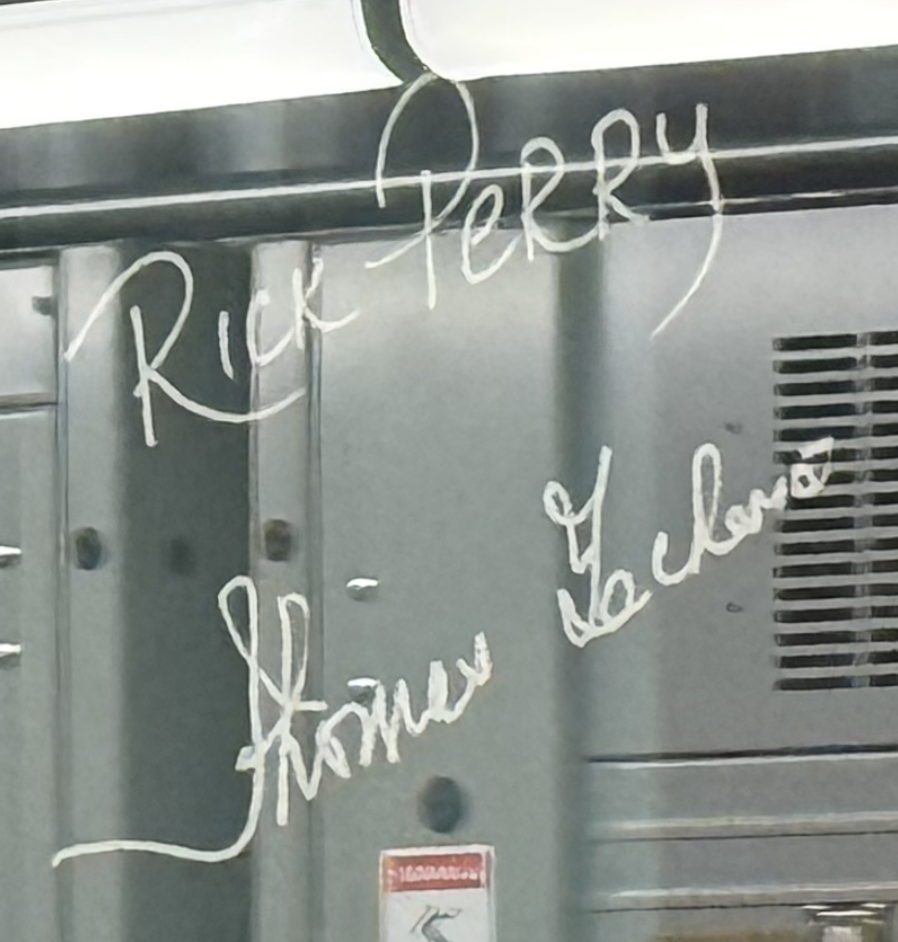 Rick Perry
Thomas Zacharia